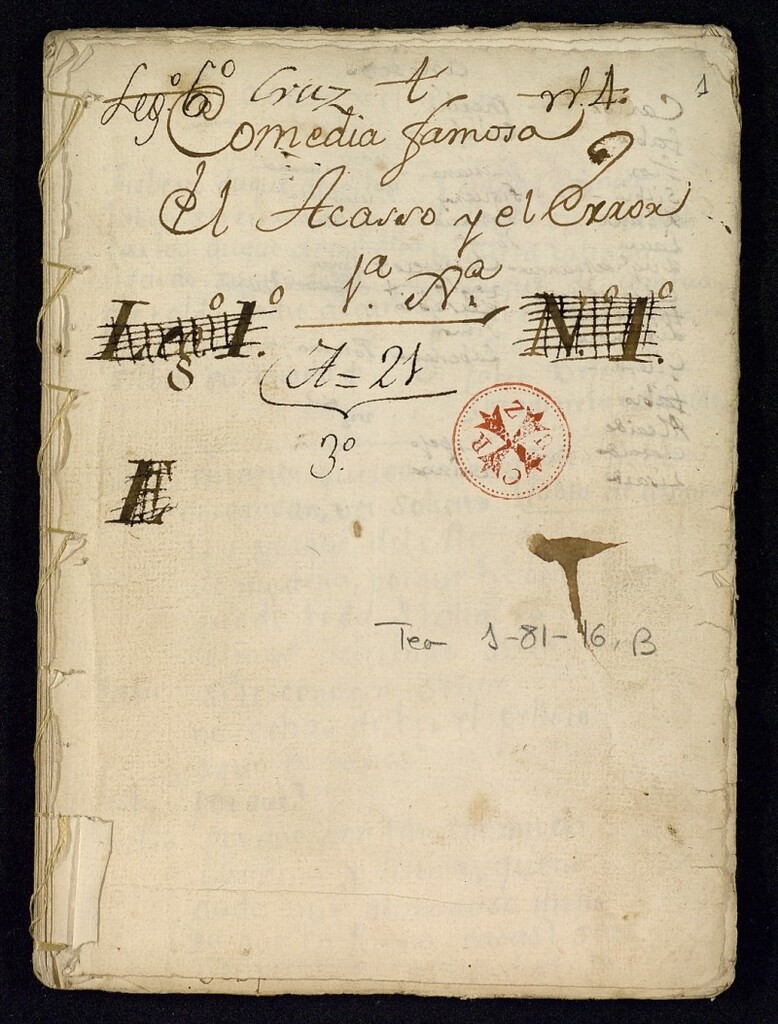 Leg.º 6º Cruz t nº. 4.
1
Comedia famosa
El Acasso y el Error
1ª. Aª.
Leg.º 1.º
N.º 1.º
8
A = 21
3º
CRUZ
E
Tea 1-81-16, B